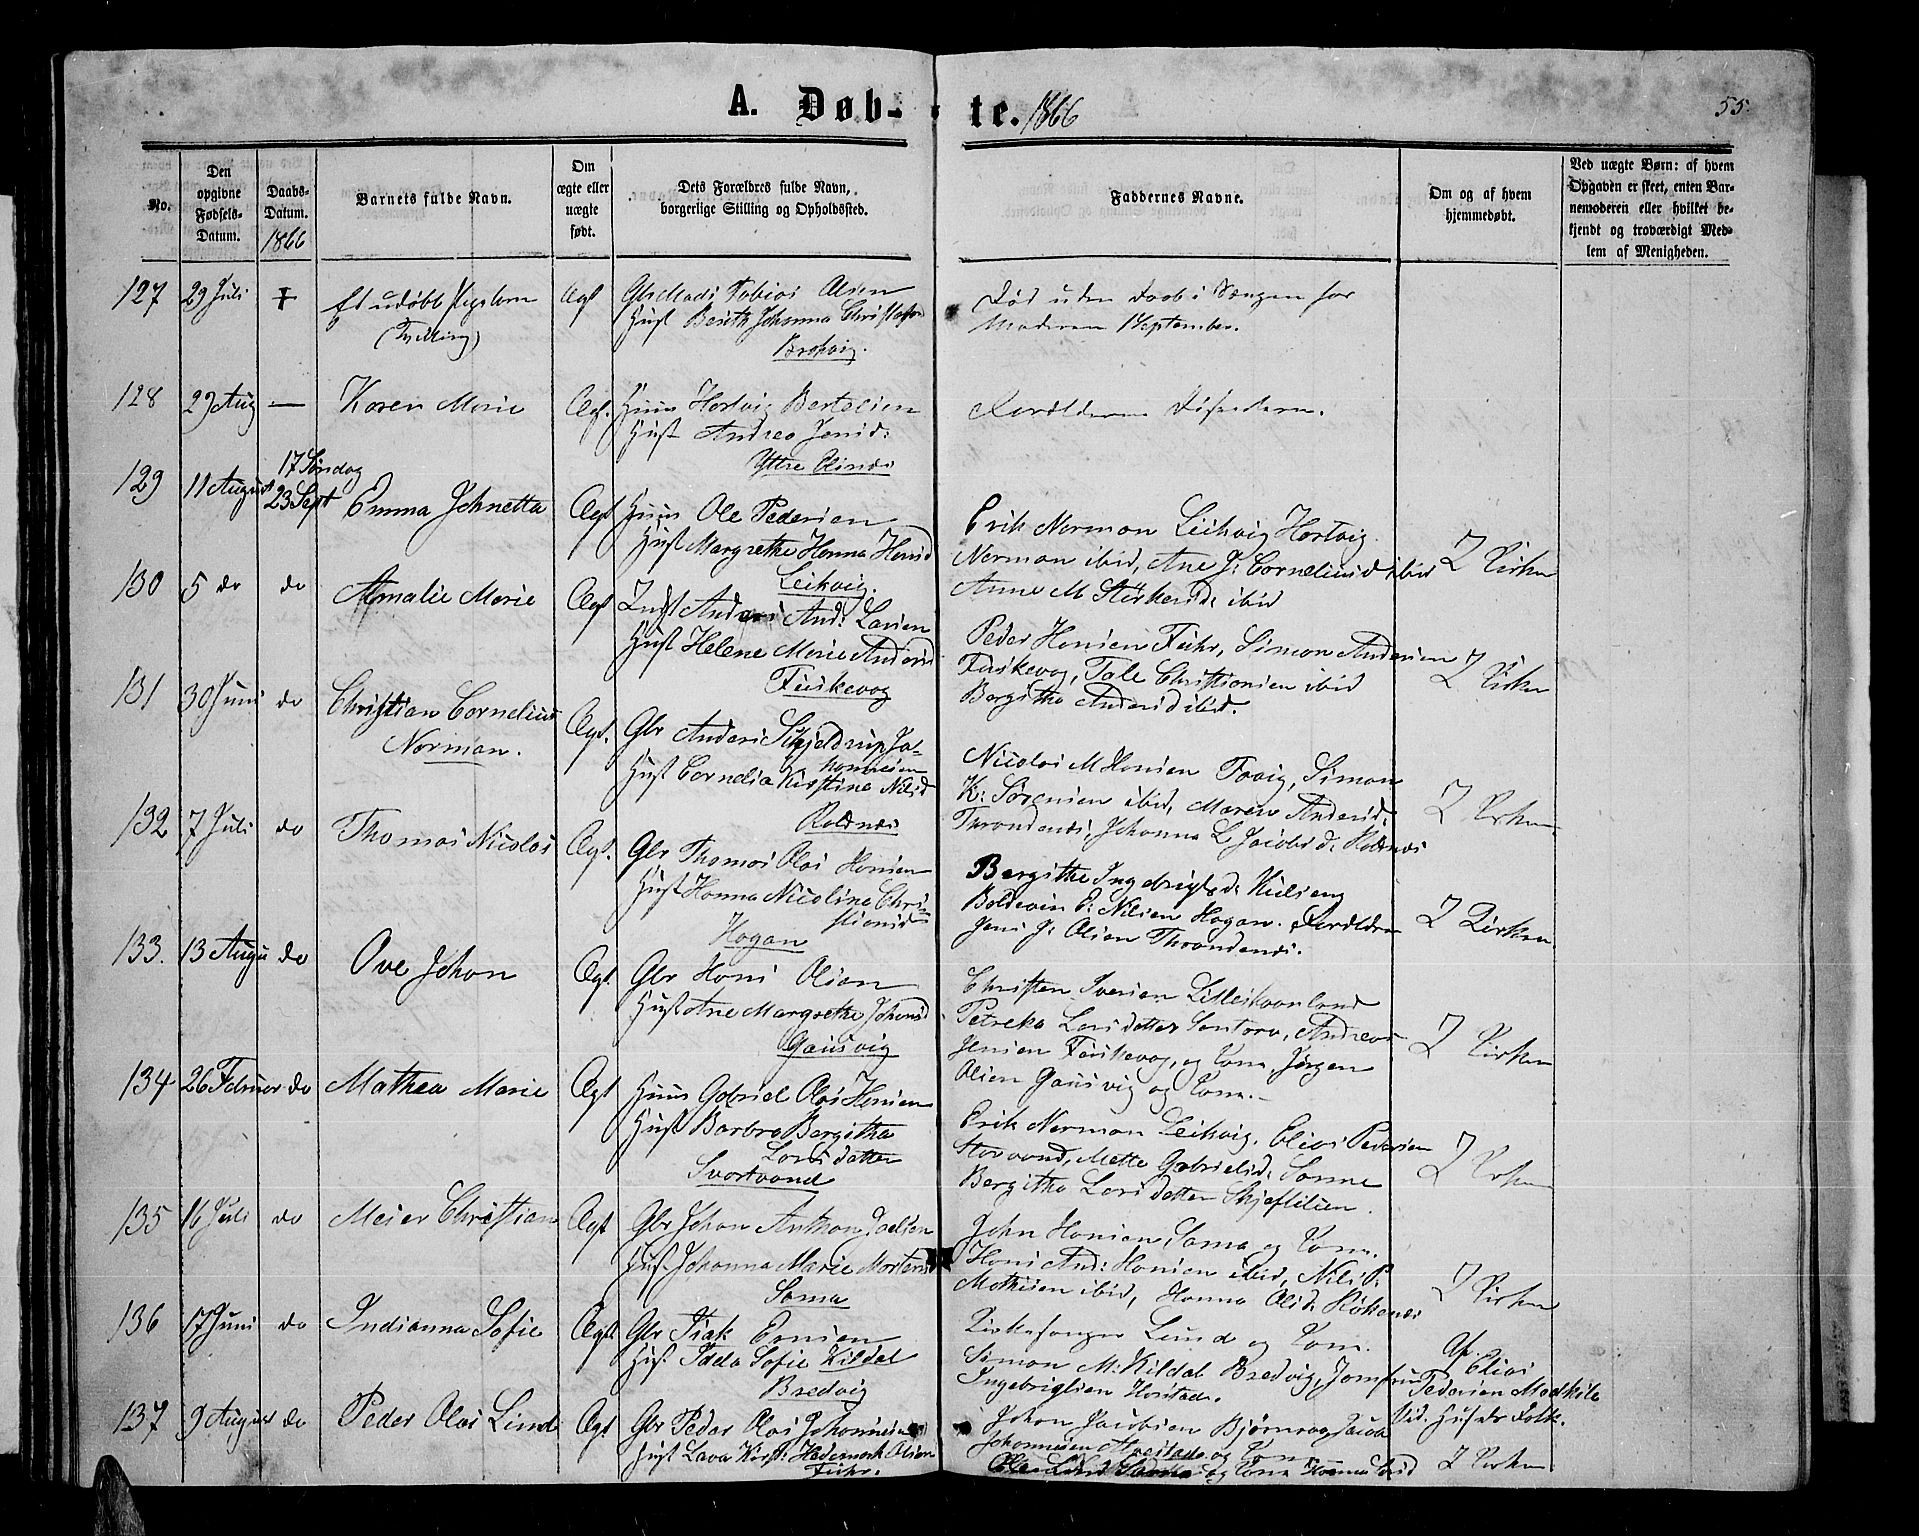 A. Døbte. 1866
55
No.
Den opgivne Fødsels-Datum.
Daabs-Datum. 1866
Barnets fulde Navn.
Om ægte eller uægte født.
Dets Forældres fulde Navn, borgerlige Stilling og Opholdssted.
Faddernes Navne.
Om og af hvem hjemmedøbt.
Ved uægte Børn: af hvem Opgaven er skeet, enten Barnemoderen eller hvilket bekjendt og troværdigt Medlem af Menigheden.
127 29 Juli Et udøbt Pigebarn Ægt Tobias Olsen
(Tvilling) Hust Berith Johanna
Død uden Daab i Sengen hos
Moderen 1 September.
128 29 Aug — Karen Marie Ægt. Huus Hartvig Bertelsen
Hust Andrea Jensd.
Yttre
Forældrene
129 11 August 17 Søndag
23 Sept Emma Johnetta Ægt Huus Ole Pedersen
Hust Margrethe Hanna Hansd
Leikvig
Erik Norman Leikvig Hartvig
Norman ibid, Ane J. Corneliusd ibid
Anne M ibid
I Kirken
130 5 do do Amalie Marie Ægt Anders And: Larsen
Hust Helene Marie Andersd
Fuskevog
Peder Hansen Fuhr, Simon Andersen
Fuskevog, Tale Christiansen ibid
Bergithe Andersd ibid.
I Kirken
131 30 Juni do Christian Cornelius
Norman. Ægt. Gbr Anders Schjeldrup Jo-
hannesen
Hust Cornelia Kirstine Nilsd
Rolnæs
Nicolai M Hansen Tovig, Simon
K: Sørensen ibid, Maren Andersd.
Throndenæs, Johanna L Jacobsd. Rolnæs
I Kirken
132 7 Juli do Thomas Nicolai Ægt. Gbr Thomas Olai Hansen
Hust Hanna Nicolina Chri-
stiansd
Hogan
Bergithe Ingebrigtsd.
Boldevin E: Nilsen Hogan. Forældre
Jens J. Olsen Throndenæs.
I Kirken
133. 13 Augu do Ove Johan Ægt. Gbr Hans Olsen
Hust Ane Margrethe Johansd
Gausvig
Christen Iversen
Petreka Larsdatter Santorv, Andreas
Jensen Fuskevog, og Kone, Jørgen
Olsen Gausvig og Kone.
I Kirken
134 26 Februar do Mathea Marie Ægt Huus Gabriel Olai Hansen
Hust Barbra Bergitha
Larsdatter
Svartvand
Erik Norman Leikvig, Elias Pedersen
Storvand, Mette Gabrielsd. Sama
Bergitha Larsdatter
I Kirken
135 16 Juli do Meier Christian Ægt Gbr Johan Anthon Joelsen
Hust. Johanna Marie Mortensd
Sama
John Hansen Sama og Kone.
Hans And: Hansen ibid, Nils P.
Mathisen ibid, Hanna Olsd.
I Kirken
136 17 Juni do Indianna Sofie Ægt. Gbr Isak Ernsen
Hust. Idda Sofie Kildal
Bredvig
Kirkesanger Lund og Kone.
Simon M. Kildal Bredvig, Jomfru
Ingebrigtsen Harstad.
Af. Elias
Pedersen
Vid. Hus
137 9 August do Peder Olai Lind Ægt Gbr Peder Olai Johannesen
Hust Lava Kirst:
Fuhr.
Johan Jacobsen Jacob
Johannesen og Kone
og Kone
I Kirken